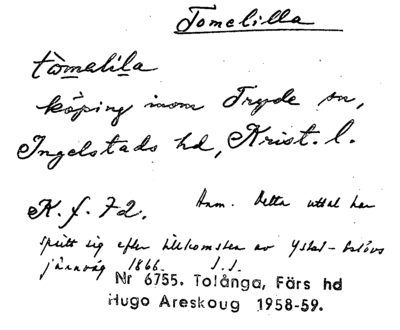 Tomelilla
tòmelila
köping inom Tryde sn,
Ingelstads hd, Krist. l.
K. f. 72. Anm. Detta uttal har
spritt sig efter tillkomsten av Ystad-Eslövs
järnväg 1866.
Nr 6755. Tolånga, Färs hd
Hugo Areskoug 1958-59.